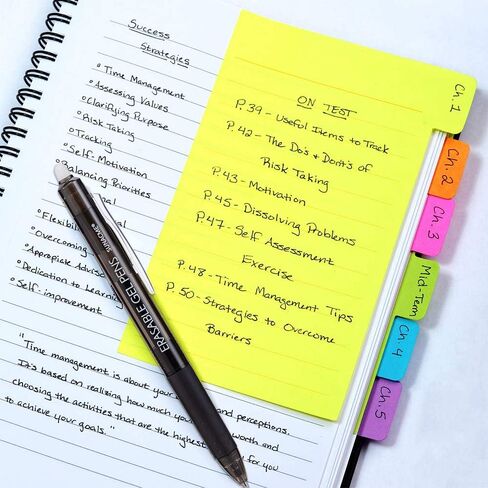 Success
Strategies
Time Management
Assessing Values
Clarifying Purpose
Risk Taking
Tracking
Self-Motivation
Balancing Priorities
Flexibil
Overcoming
Appropiate Advisor
Dedication to Learning
Self-improvement
"Time management is about your and perceptions.
It's based on realizing how much you worth and
choosing the activities that are the highest for you
to achieve your goals."
ERASABLE GEL PENS
ON TEST
P. 39 - Useful Items to Track
P. 42 - The Do's & Dont's of
Risk Taking
P. 43 - Motivation
P. 45 - Dissolving Problems
P. 47 - Self Assessment
Exercise
P. 48 - Time Management Tips
P. 50 - Strategies to Overcome
Barriers
Ch. 1
Ch. 2
Ch. 3
Mid-Term
Ch. 4
Ch. 5